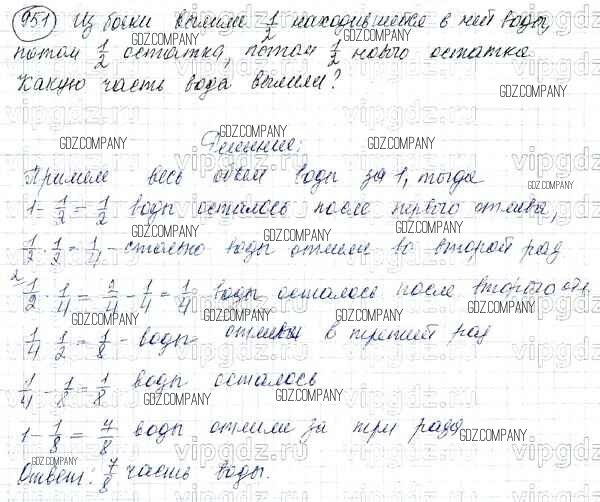 951 Из бочки вылили 1/2 находившейся в ней воды,
потом 1/2 остатка, потом 1/2 нового остатка.
Какую часть вода вылили?
Решение:
Примем весь объем воды за 1, тогда
1 - 1/2 = 1/2 воды осталось после первого отлива,
1/2 · 1/2 = 1/4 - столько воды отлили во второй раз
2/ 1/2 - 1/4 = 2/4 - 1/4 = 1/4 воды осталось после второго отл.
1/4 · 1/2 = 1/8 - воды отлили в третий раз
1/4 - 1/8 = 1/8 воды осталось
1 - 1/8 = 7/8 воды отлили за три раза
Ответ: 7/8 часть воды.
GDZ.COMPANY
vipgdz.ru